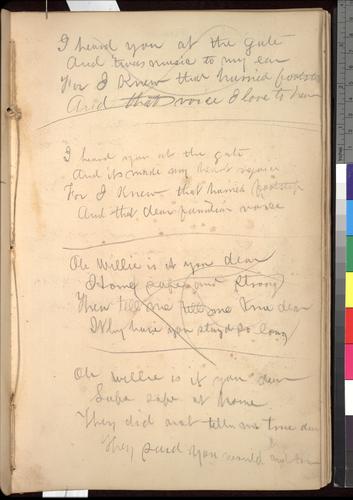 I heard you at the gate
And twas music to my ear
For I Knew that hurried footstep
And that voice I love to hear
I heard you at the gate
And its made my heart rejoice
For I Knew that hurried footstep
And that dear familiar voice
Oh Willie is it you dear
Home safe and strong
Then tell me tell me true dear
Why have you stayd so long
Oh Willie is it you dear
Safe safe at home
They did not tell me true dear
They said you would not come